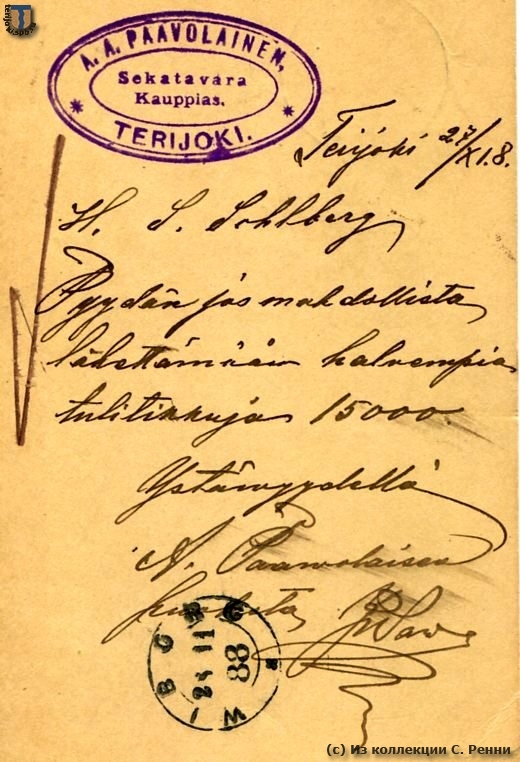 A. A. PAAVOLAINEN,
Sekatavara
Kauppias.
TERIJOKI.
Terijoki 27/XI.8.
H. S. Sohlberg
Pyydän jos mahdollista
lähettämään halvempia
tulitikkuja 15000.
Ystävyydellä
A. Paavolaisen
puolesta
WIBORG
11
88
(с) Из коллекции С. Ренни